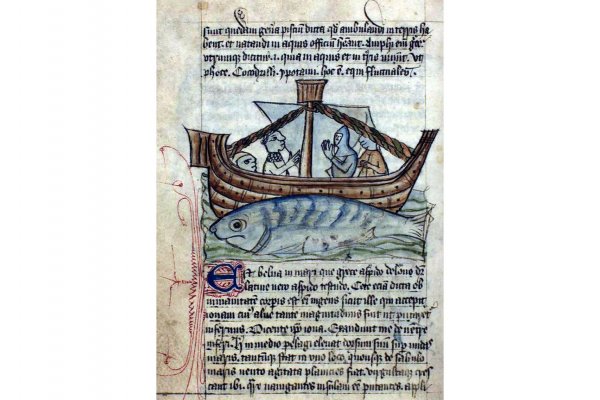 sunt quedam gen̄a pisciū dicta qd ambulandi in terris ha
bent. et natandi in aquis officiū hēant. Amphi em̄ gre
utrumque dicitur .i. quia in aquis et in t̄ris uiuūt. Vt
phoce. Cocodrilli. ypotami. hoc ē. equi fluctuales.
Est belua in mari que grece aspido delone dr̄
latine vero aspido testudo. Cete eciā dicta ob
immanitatem corpis est em̄ ingens sicut ille qui accepit
ionam cui⁹ alue tante magnitudinis fuit ut putaret
infernus. Dicente ip̄o iona. Exaudiuit me de uentre
inferi. h̄ in medio pelagi eleuat dorsum suū sup undas
maris. tantūque stat in uno loco. quousque de sabulo
maris vento agitata planicies fiat. virgultaque cres
cant ibi. nauigantes insulam eē putantes. appli